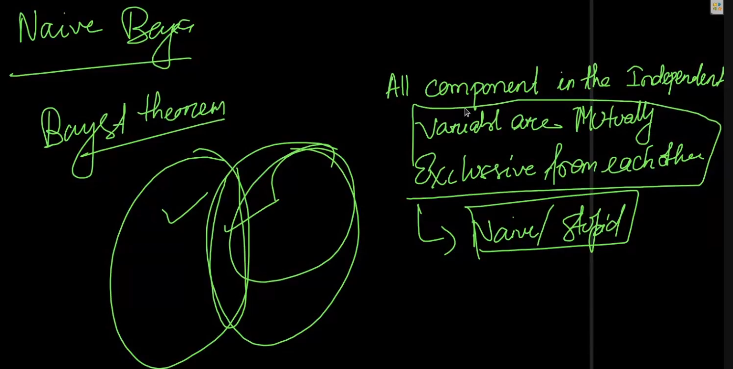 Naive Bayes
Bayest theorem
All component in the Independent
Variabl are Mutually
Exclussive from each other
Naive/ Stupid